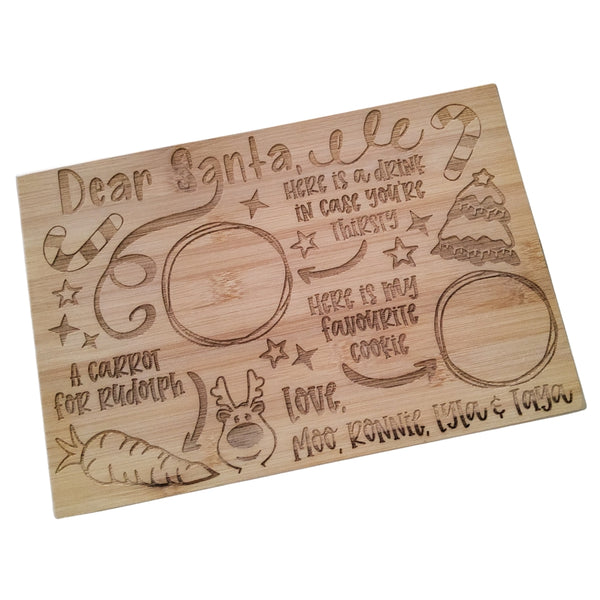 Dear Santa,
HERE IS A DRINK
IN CASE YOU'RE
THIRSTY
HERE IS MY
FAVOURITE
COOKIE
A CARROT
FOR RUDOLPH
LOVE,
MOO, RONNIE, LYLA & TAYA